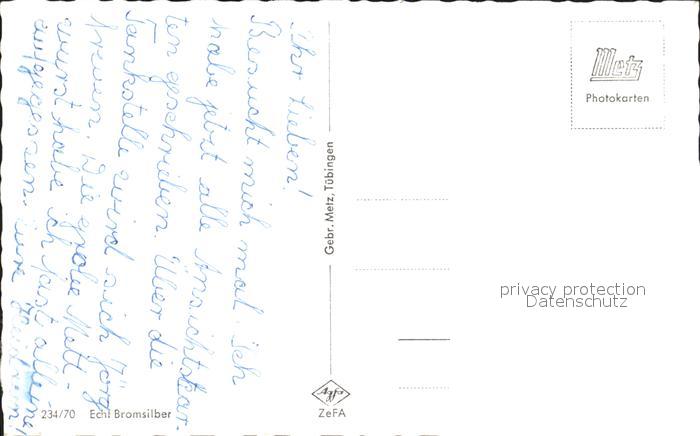 Ihr Lieben!
Besucht mich mal. Ich
habe jetzt alle Ansichtskar-
ten geschrieben. Über die
Tankstelle wird sich Jörg
freuen. Die grobe Mett-
wurst habe ich fast alleine
aufgegessen. Eure
Gebr. Metz, Tübingen
Metz
Photokarten
privacy protection
Datenschutz
Agfa
ZeFA
234/70 Echt Bromsilber